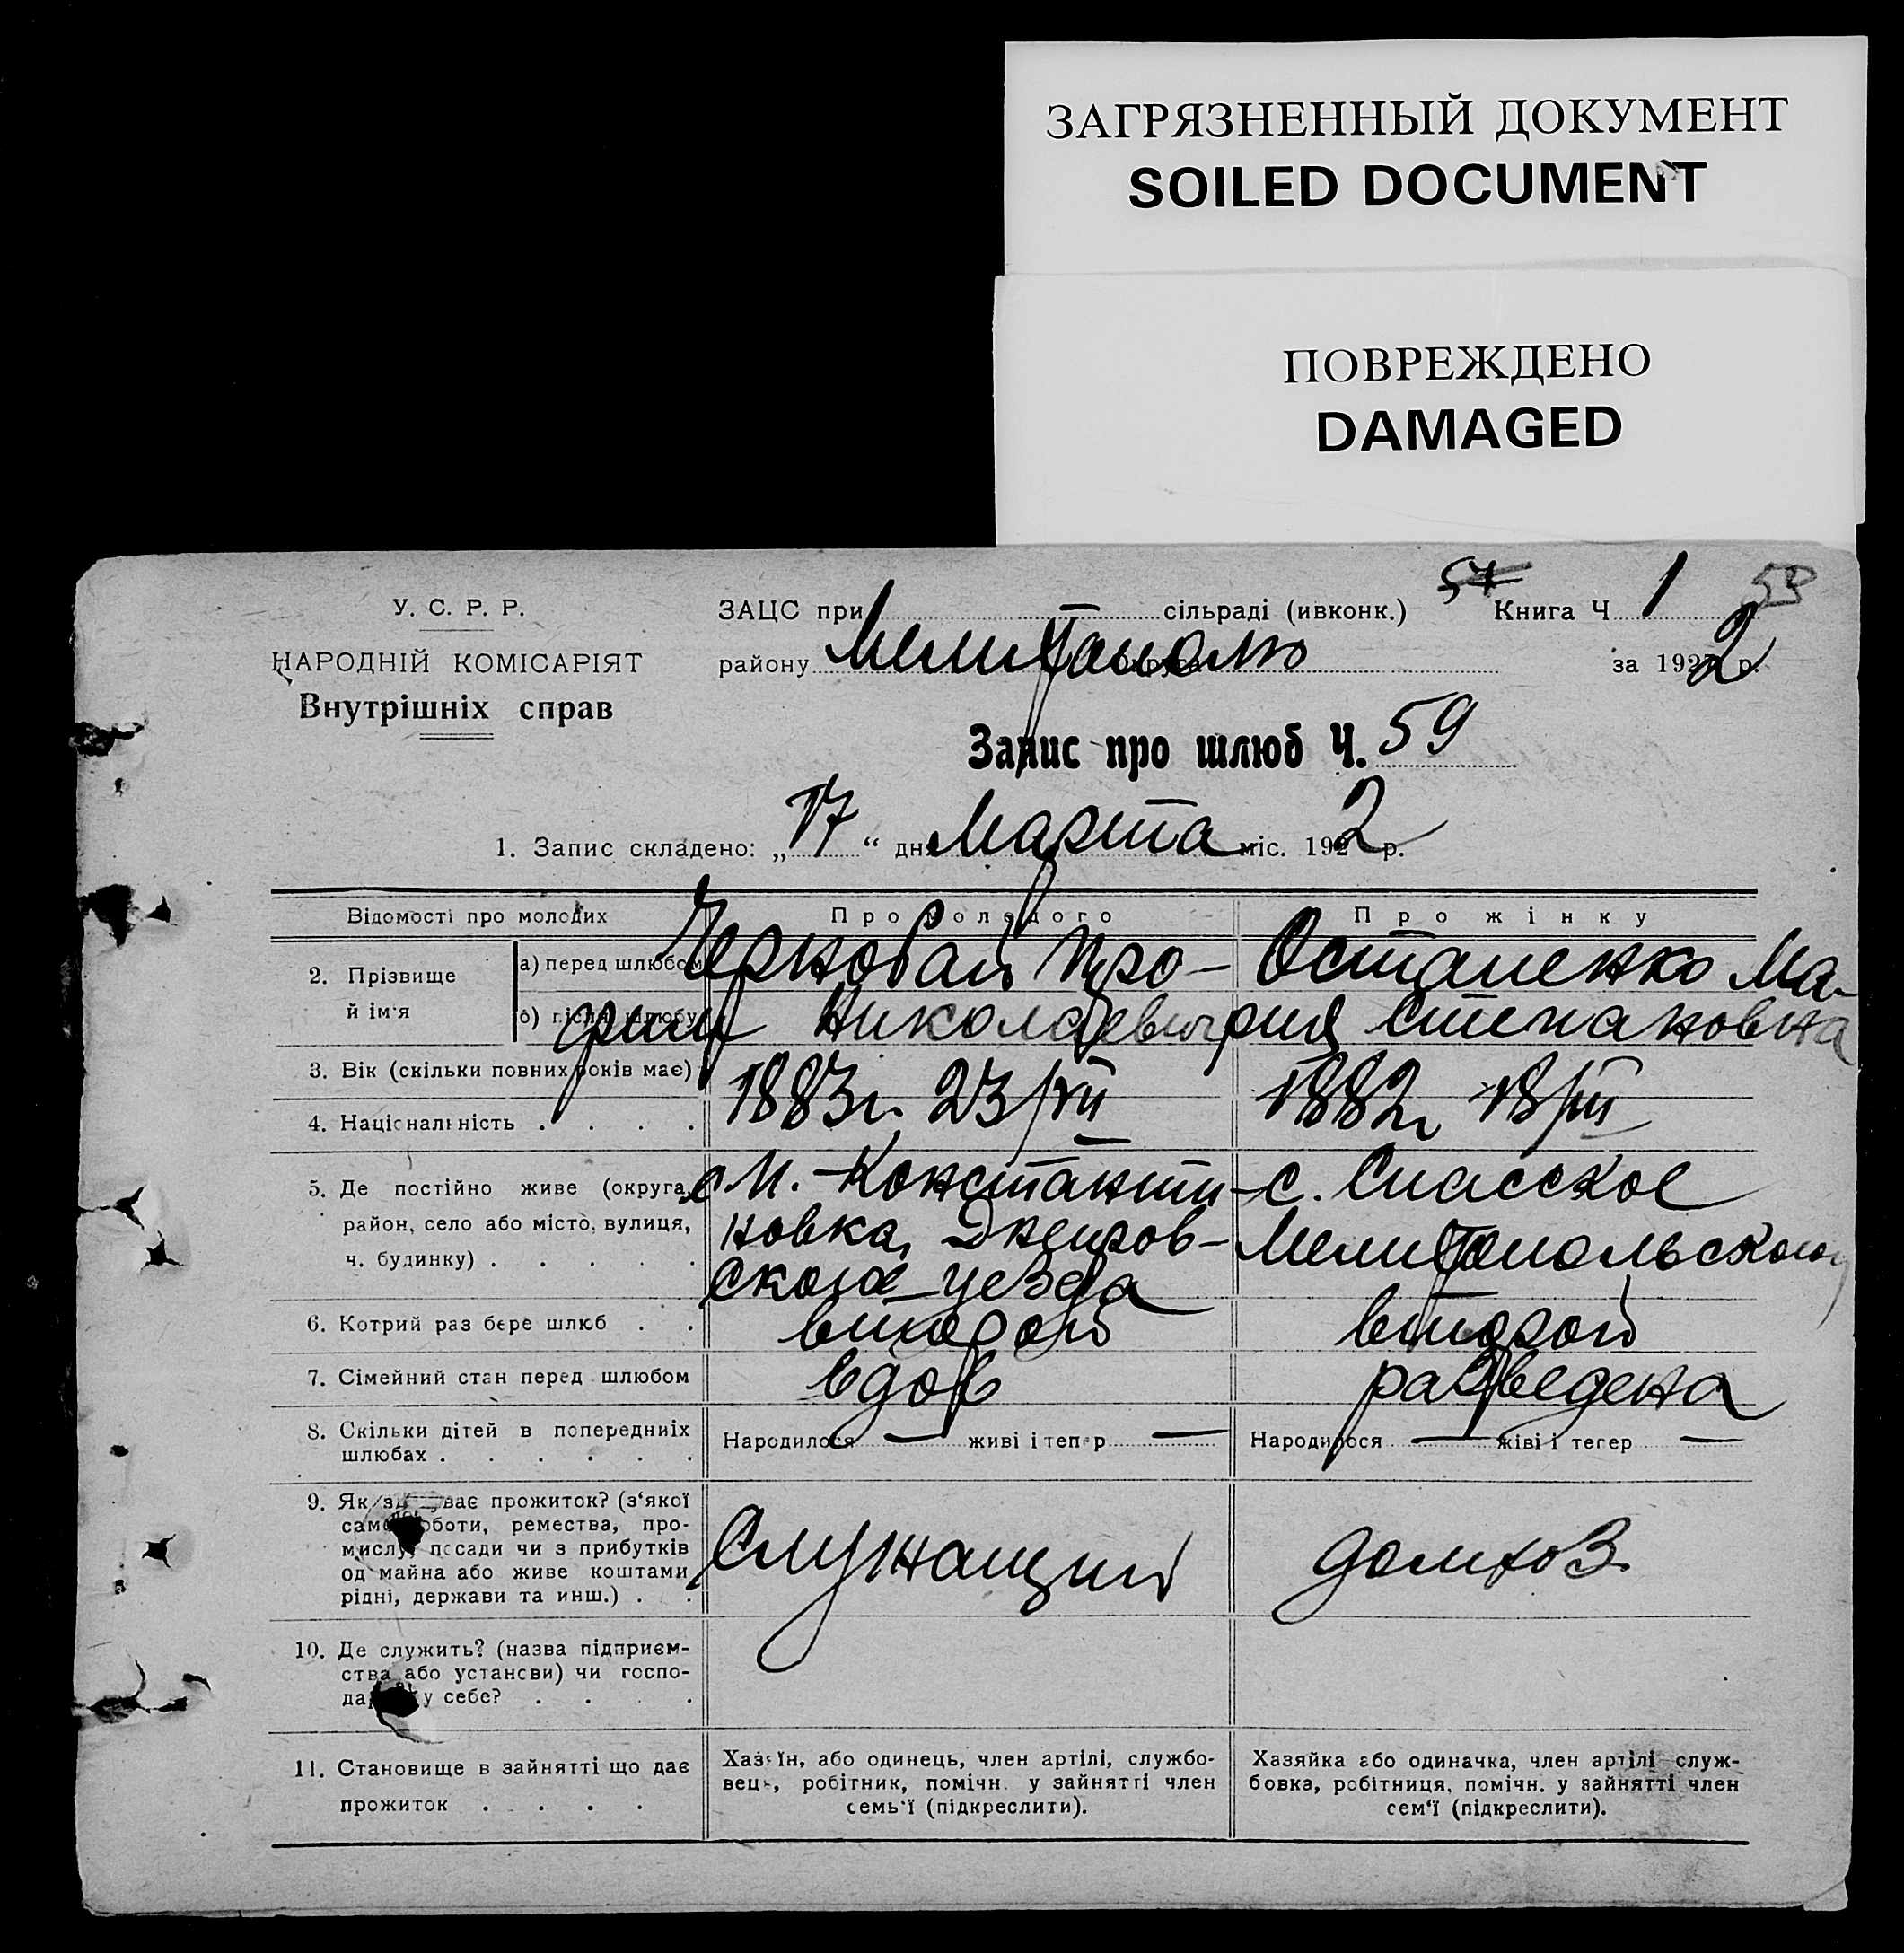 ЗАГРЯЗНЕННЫЙ ДОКУМЕНТ
SOILED DOCUMENT
ПОВРЕЖДЕНО
DAMAGED
У. С. Р. Р.
НАРОДНІЙ КОМІСАРІЯТ
Внутрішніх справ
ЗАЦС при сільраді (ивконк.) 57 Книга Ч 1 53
району Мелитополю за 1922 р.
Запис про шлюб Ч. 59
1. Запис складено: „ 17 “ дн Марта міс. 1922 р.
Відомості про молодих
Про молодого
Про жінку
2. Прізвище й ім'я
а) перед шлюбом
б) після шлюбу
Черновай Про-
фим Николаевич
Остапенко Ма-
рия Степановна
3. Вік (скільки повних років має)
1883г. 23/VII
1882г. 18/III
4. Національність . . . .
5. Де постійно живе (округа,
район, село або місто, вулиця,
ч. будинку) . . . . .
с М. -Константи-
новка, Днепров-
ского уезда
с. Спасское
Мелитопольского
6. Котрий раз бере шлюб . .
второй
второй
7. Сімейний стан перед шлюбом
вдов
разведена
8. Скільки дітей в попередниіх
шлюбах . . . . . .
Народилося — живі і тепер —
Народилося — живі і тепер —
9. Як здобуває прожиток? (з'якої
само роботи, ремества, про-
мислу, посади чи з прибутків
од майна або живе коштами
рідні, держави та инш.) . .
Служащий
домхоз.
10. Де служить? (назва підприєм-
ства або установи) чи госпо-
дарює у себе? . . . .
11. Становище в зайнятті що дає
прожиток . . . .
Хазяїн, або одинець, член артілі, службо-
вець, робітник, помічн. у зайнятті член
семь'ї (підкреслити).
Хазяйка або одиначка, член артілі служ-
бовка, робітниця, помічн. у зайнятті член
сем'ї (підкреслити).